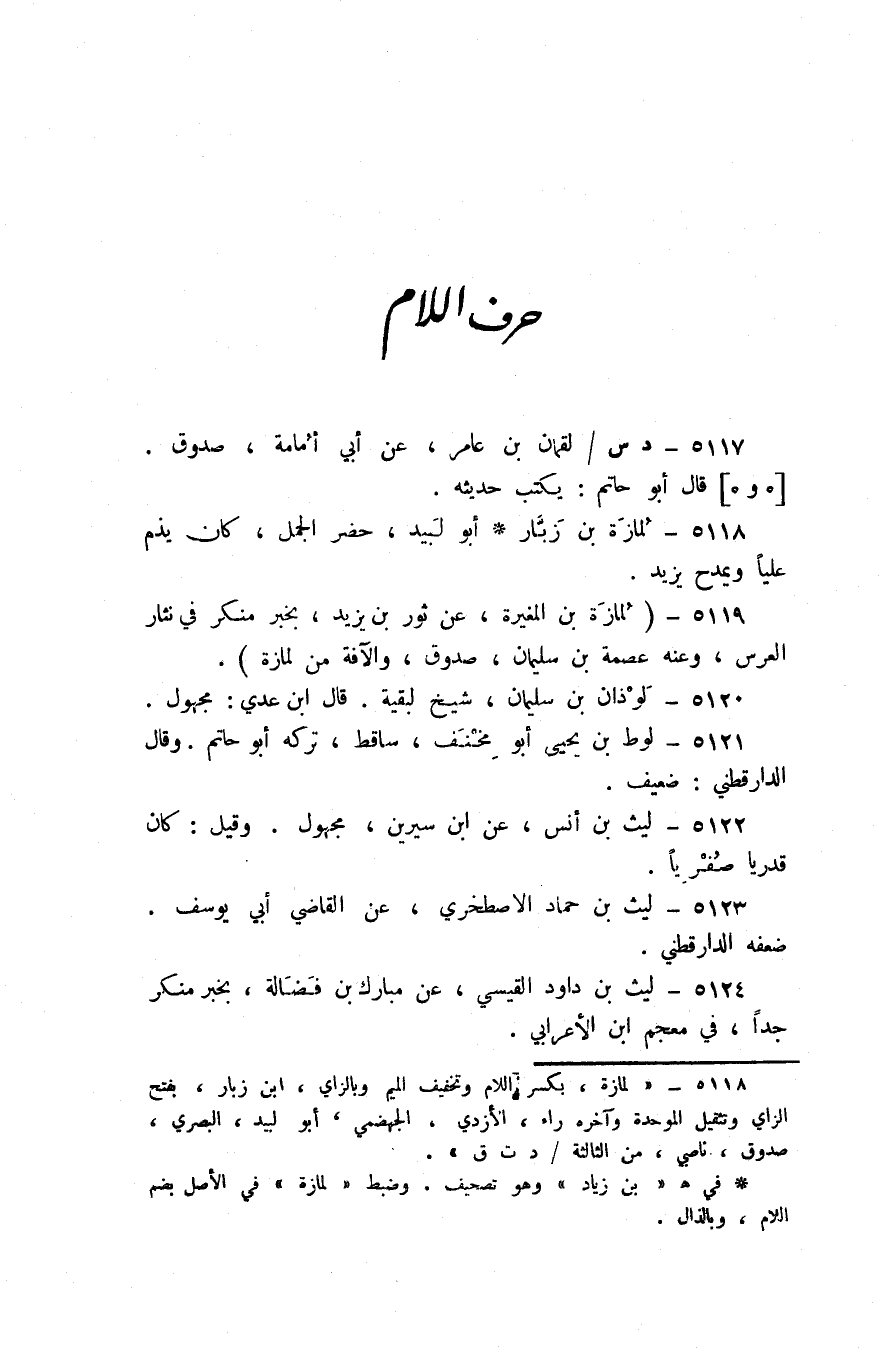 حرف اللام
٥١١٧ - د س / لقمان بن عامر ، عن أبي أُمامة ، صدوق .
[ه و ه] قال أبو حاتم : يكتب حديثه .
٥١١٨ - لُمازَة بن زَبَّار * أبو لَبيد ، حضر الجمل ، كان يذم
علياً ويمدح يزيد .
٥١١٩ - ( لُمازَة بن المغيرة ، عن ثور بن يزيد ، بخبر منكر في نثار
العرس ، وعنه عصمة بن سليمان ، صدوق ، والآفة من لمازة ) .
٥١٢٠ - لَوْذان بن سليمان ، شيخ لبقية . قال ابن عدي : مجهول .
٥١٢١ - لوط بن يحيى أبو مِخْنَف ، ساقط ، تركه أبو حاتم . وقال
الدارقطني : ضعيف .
٥١٢٢ - ليث بن أنس ، عن ابن سيرين ، مجهول . وقيل : كان
قدريا صُفْرِياً .
٥١٢٣ - ليث بن حماد الاصطخري ، عن القاضي أبي يوسف .
ضعفه الدارقطني .
٥١٢٤ - ليث بن داود القيسي ، عن مبارك بن فَضَالة ، بخبر منكر
جداً ، في معجم ابن الأعرابي .
٥١١٨ - « لمازة ، بكسر اللام وتخفيف الميم وبالزاي ، ابن زبار ، بفتح
الزاي وتثقيل الموحدة وآخره راء ، الأزدي ، الجهضمي ، أبو لبيد ، البصري ،
صدوق ، ناصبي ، من الثالثة / د ت ق » .
* في ه « بن زياد » وهو تصحيف . وضبط « لمازة » في الأصل بضم
اللام ، وبالذال .